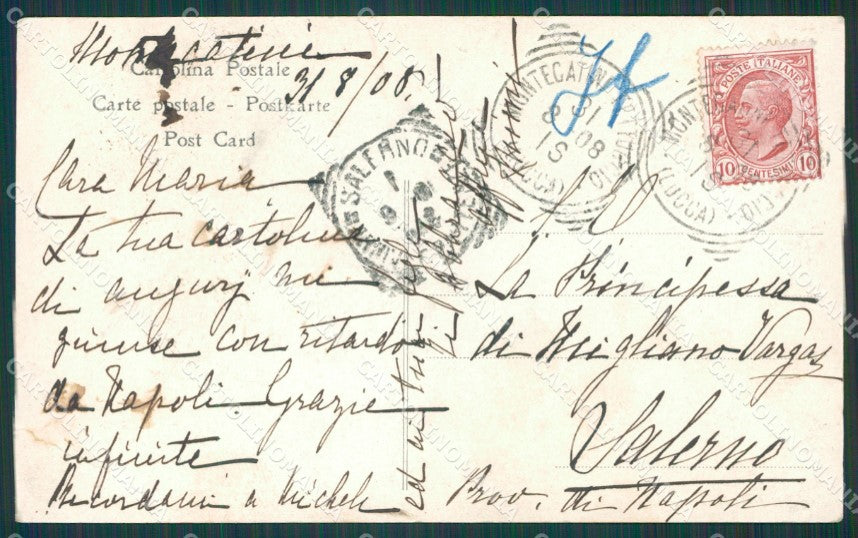 Montecatini
31/8/08.
Cartolina Postale
Carte postale - Postkarte
Post Card
Cara Maria
La tua cartolina
di augurj mi
giunse con ritardo
da Napoli Grazie
infinite
Ricordami a Michele
ed ai tuoi
abbraccio
La Principessa
di Migliano Vargas
Salerno
Prov. di Napoli
POSTE ITALIANE
10 CENTESIMI 10
MONTECATINI
31 8 08
(LUCCA)
MONTECATINI
(LUCCA)
SALERNO
CARTOLINOMANIA